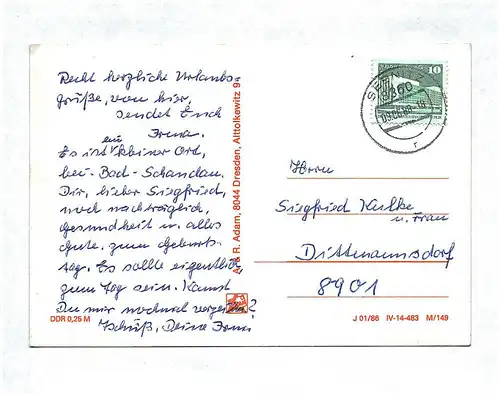 Recht herzliche Urlaubs-
grüße, von hier,
sendet Euch
Irma.
Es ist ein kleiner Ort,
bei Bad-Schandau.
Dir, lieber Siegfried,
noch nachträglich,
Gesundheit u. alles
Gute, zum Geburts-
tag. Es sollte eigentlich,
zum Tag sein. Kannst
Du mir nochmal verzeihen?
Tschüß, Deine Irma
DDR 0,25 M
A. & R. Adam, 8044 Dresden, Alttolkewitz 9a
10
8360
Herrn
Siegfried Kulke
u. Frau
Dittmannsdorf
8901
J 01/86 IV-14-483 M/149